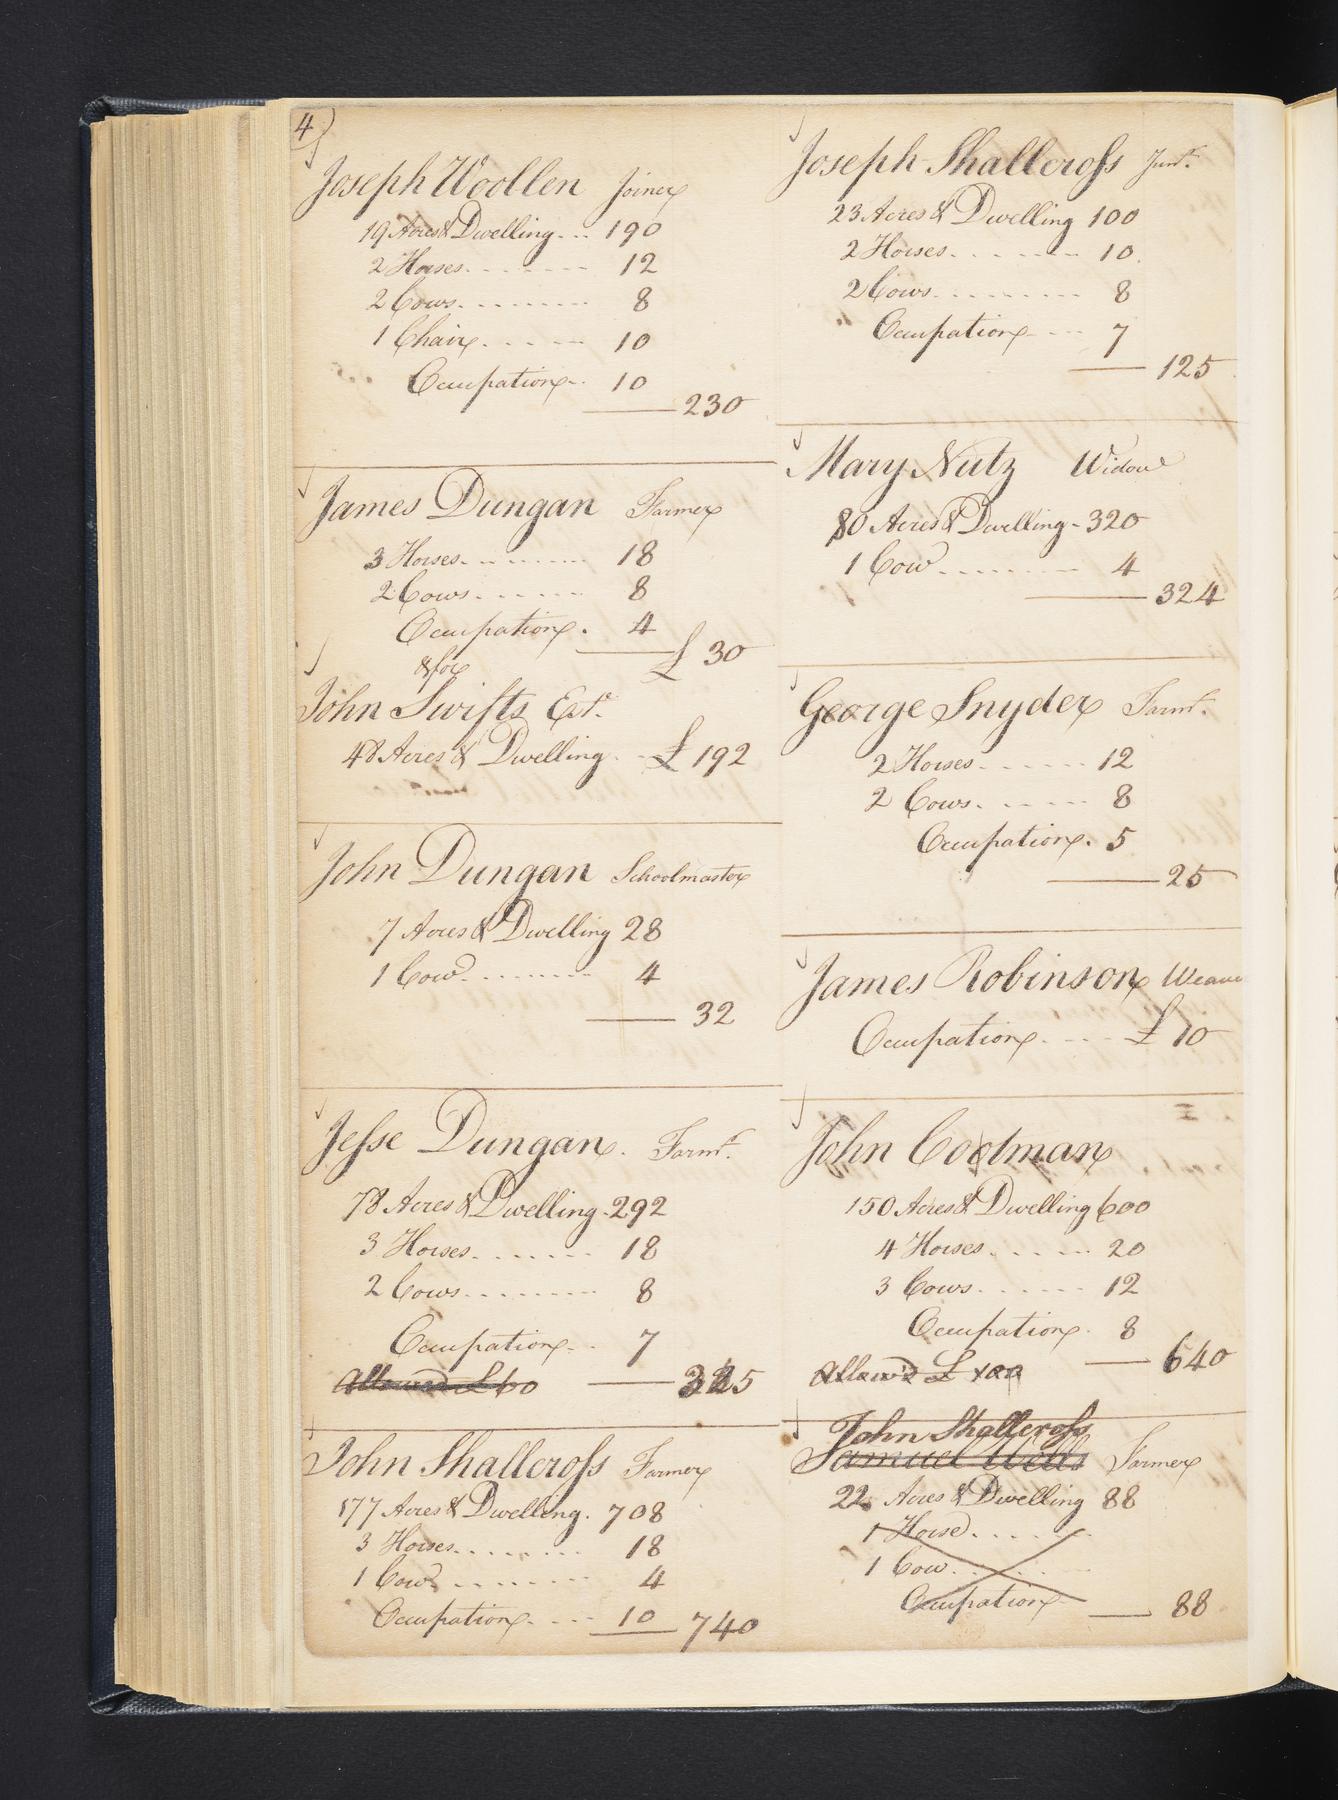 4)
Joseph Woollen Joiner
19 Acres & Dwelling ... 190
2 Horses ....... 12
2 Cows ........ 8
1 Chair ...... 10
Occupation .. 10
230
James Dungan Farmer
3 Horses ........ 18
2 Cows ...... 8
Occupation . 4
£ 30
& for
John Swifts Est.
48 Acres & Dwelling .. £ 192
John Dungan Schoolmaster
7 Acres & Dwelling 28
1 Cow ........ 4
32
Jesse Dungan. Farmr.
78 Acres & Dwelling . 292
3 Horses ....... 18
2 Cows ......... 8
Occupation .. 7
Allowed £60 325
John Shallcross Farmer
177 Acres & Dwelling . 708
3 Horses ........ 18
1 Cow ....... 4
Occupation .... 10 740
Joseph Shallcross Junr.
23 Acres & Dwelling 100
2 Horses ....... 10.
2 Cows ......... 8
Occupation ... 7
125
Mary Nutz Widow
80 Acres & Dwelling - 320
1 Cow ......... 4
324
George Snyder Farmr.
2 Horses ...... 12
2 Cows ..... 8
Occupation . 5
25
James Robinson Weaver
Occupation .... £ 10
John Coolman
150 Acres & Dwelling 600
4 Horses ..... 20
3 Cows ...... 12
Occupation . 8
640
Allow'd £ 100
John Shallcross
Samuel Wells Farmer
22 Acres & Dwelling 88
1 Horse .....
1 Cow .....
Occupation
88